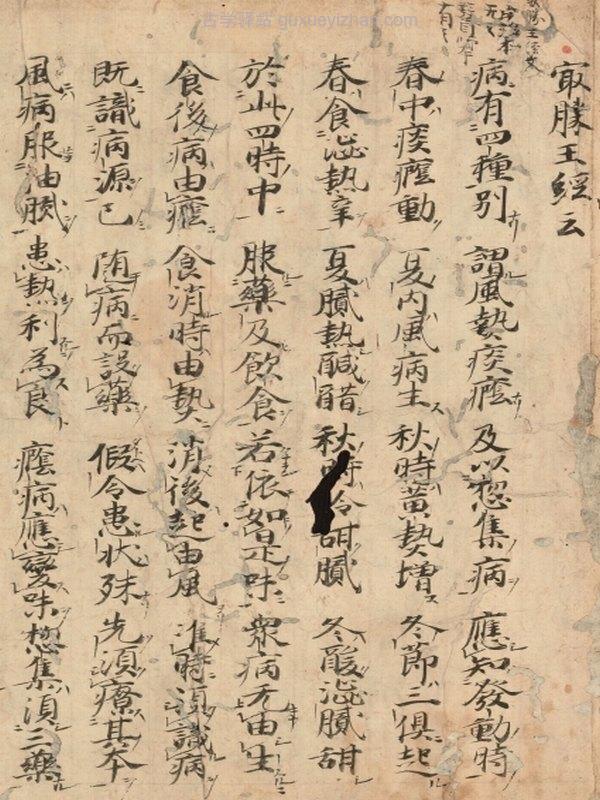 古学驿站 guxueyizhan.com
冣勝王經云
病有四種別 謂風熱痰癊 及以惣集病 應知發動時
春中痰癊動 夏内風病生 秋時黃熱增 冬節三俱起
春食澁熱辛 夏膩熱鹹醋 秋時冷甜膩 冬酸澁膩甜
於此四時中 服藥及飲食 若依如是味 衆病无由生
食後病由癊 食消時由熱 消後起由風 准時須識病
既識病源已 随病而設藥 假令患狀殊 先須療其本
風病服油膩 患熱利為良 癊病應變味 惣集須三藥